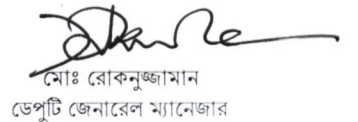 মোঃ রোকনুজ্জামান
ডেপুটি জেনারেল ম্যানেজার